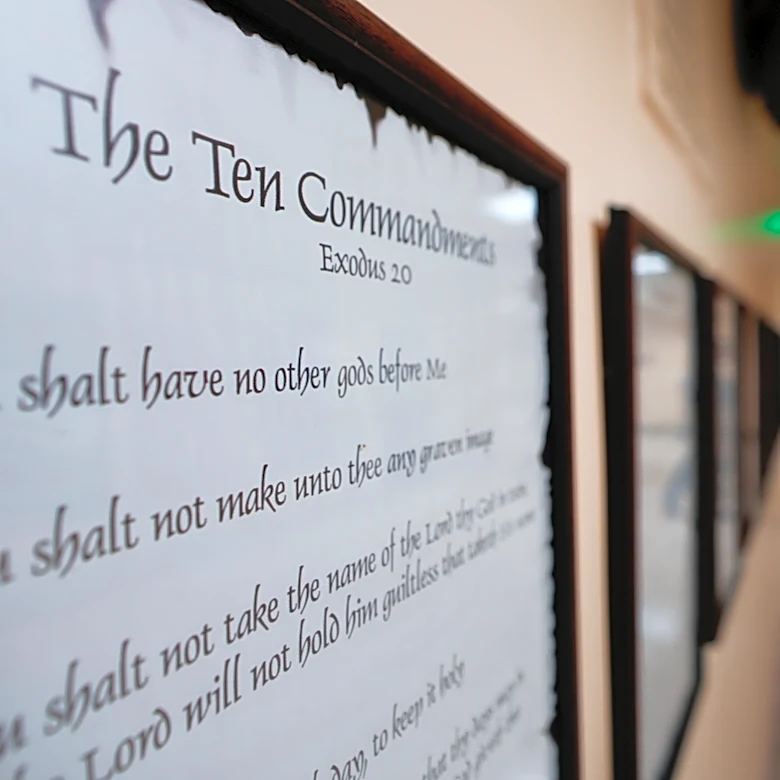 The Ten Commandments
Exodus 20
shalt have no other gods before Me
shalt not make unto thee any graven image
shalt not take the name of the Lord thy God in vain,
Lord will not hold him guiltless that taketh
day, to keep it holy
that thy days may